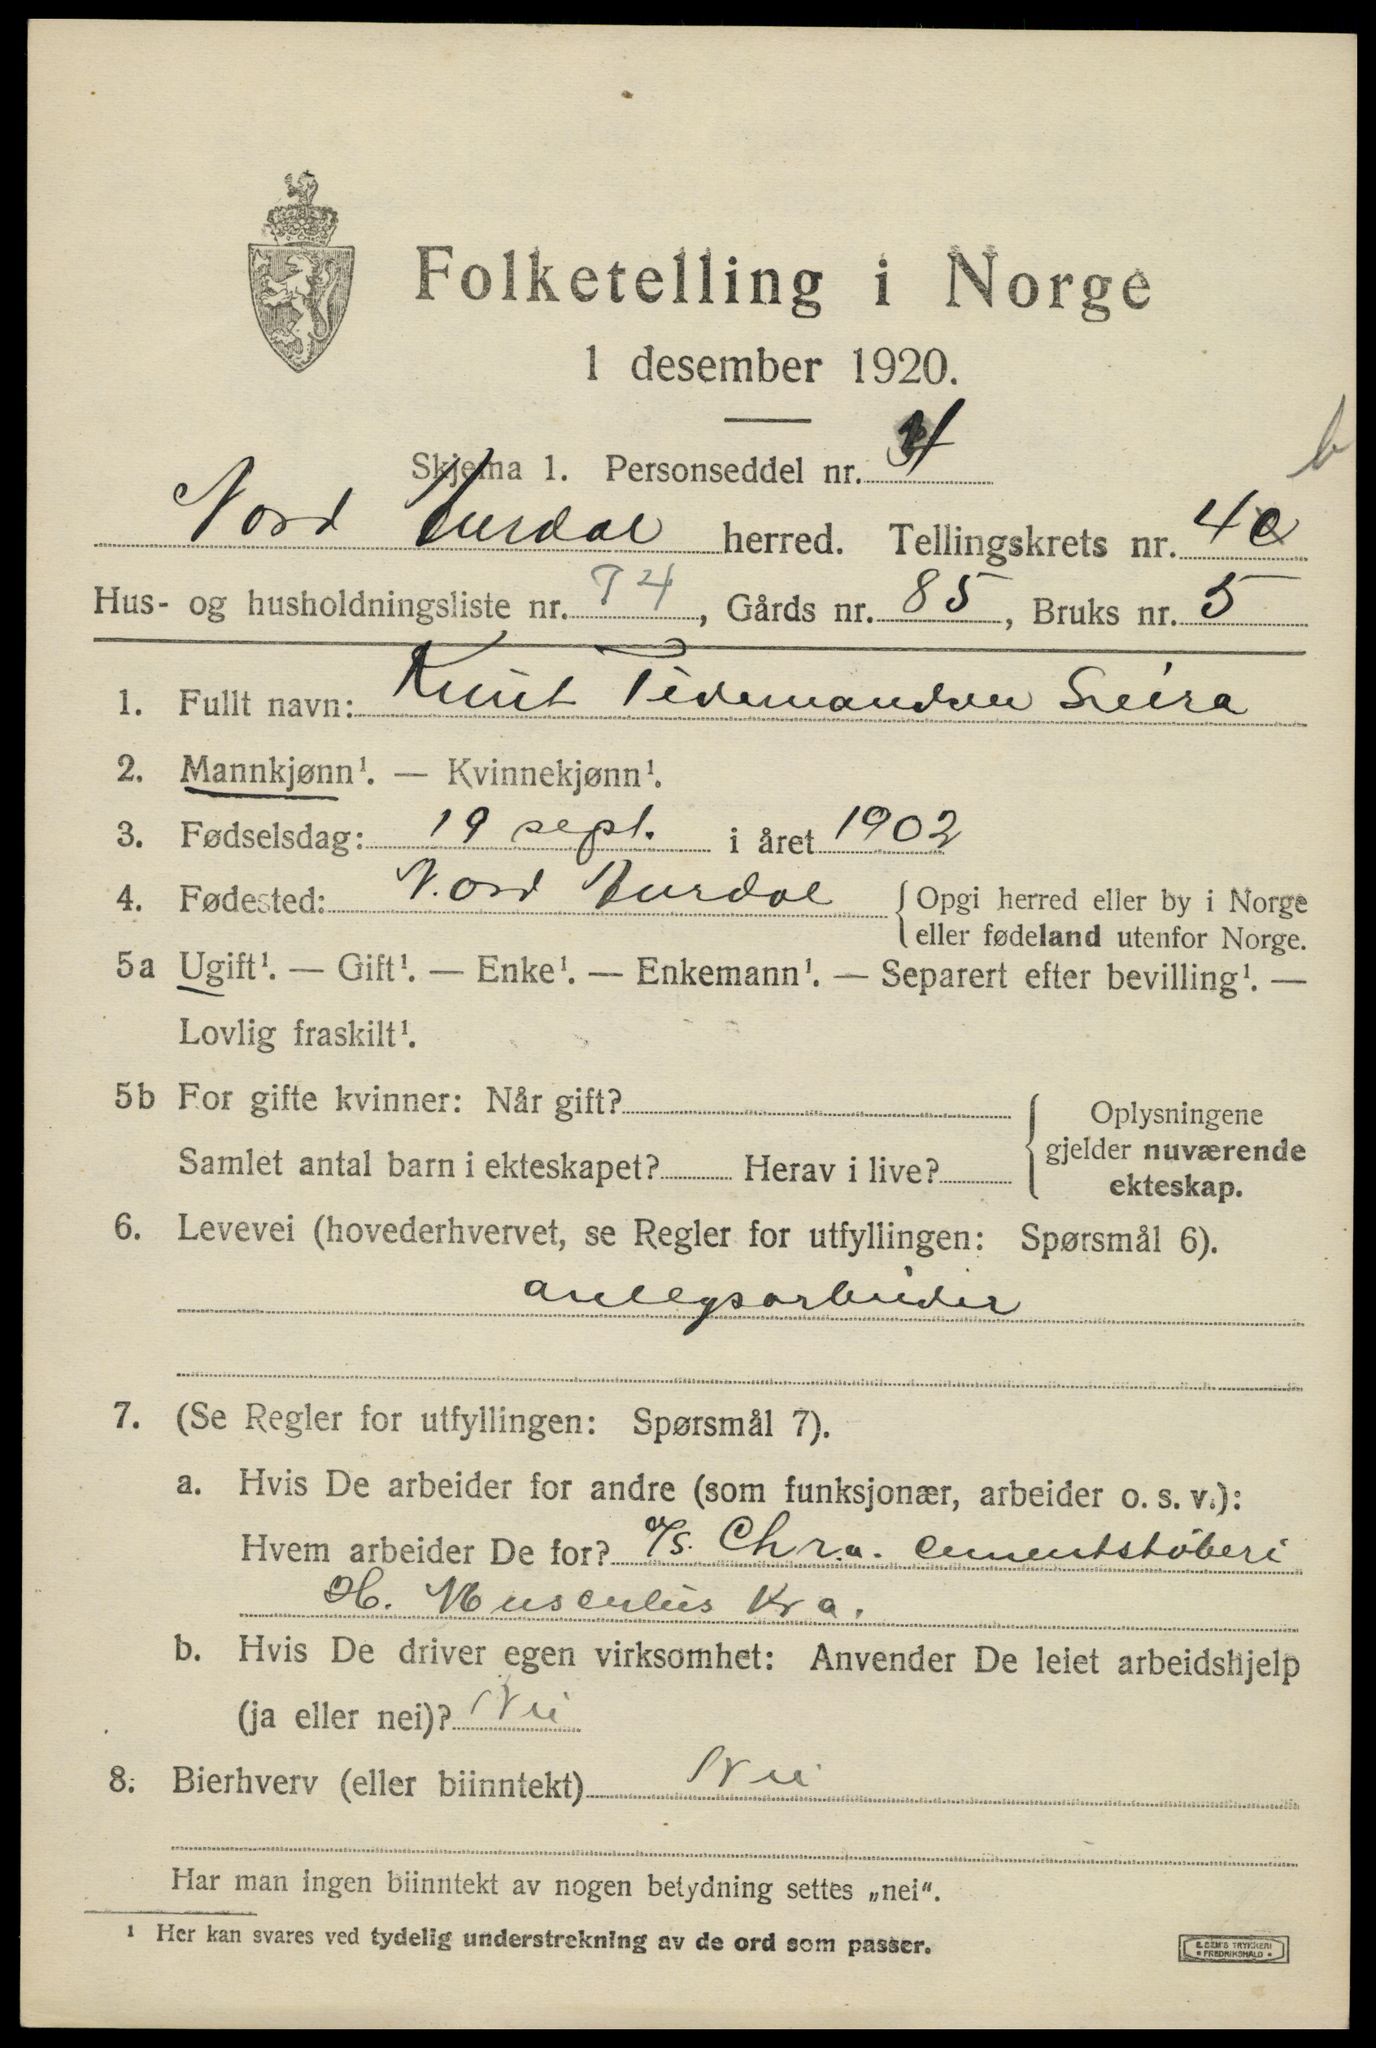 Folketelling i Norge
1 desember 1920.
Skjema 1. Personseddel nr. 4
b
Nord Aurdal herred. Tellingskrets nr. 4
Hus- og husholdningsliste nr. 74, Gårds nr. 85, Bruks nr. 5
1. Fullt navn: Knut Tidemandsen Leira
2. Mannkjønn¹. — Kvinnekjønn¹.
3. Fødselsdag: 19 sept. i året 1902
4. Fødested: Nord Aurdal { Opgi herred eller by i Norge
eller fødeland utenfor Norge.
5a Ugift¹. — Gift¹. — Enke¹. — Enkemann¹. — Separert efter bevilling¹. —
Lovlig fraskilt¹.
5b For gifte kvinner: Når gift?
Samlet antal barn i ekteskapet? Herav i live?
Oplysningene
gjelder nuværende
ekteskap.
6. Levevei (hovederhvervet, se Regler for utfyllingen: Spørsmål 6).
anlegsarbeider
7. (Se Regler for utfyllingen: Spørsmål 7).
a. Hvis De arbeider for andre (som funksjonær, arbeider o. s. v.):
Hvem arbeider De for? A/S. Chr.a. cementstøberi
H. Musculus Kra.
b. Hvis De driver egen virksomhet: Anvender De leiet arbeidshjelp
(ja eller nei)? Nei
8. Bierhverv (eller biinntekt) Nei
Har man ingen biinntekt av nogen betydning settes „nei“.
¹ Her kan svares ved tydelig understrekning av de ord som passer.
E. SEM'S TRYKKERI
FREDRIKSHALD